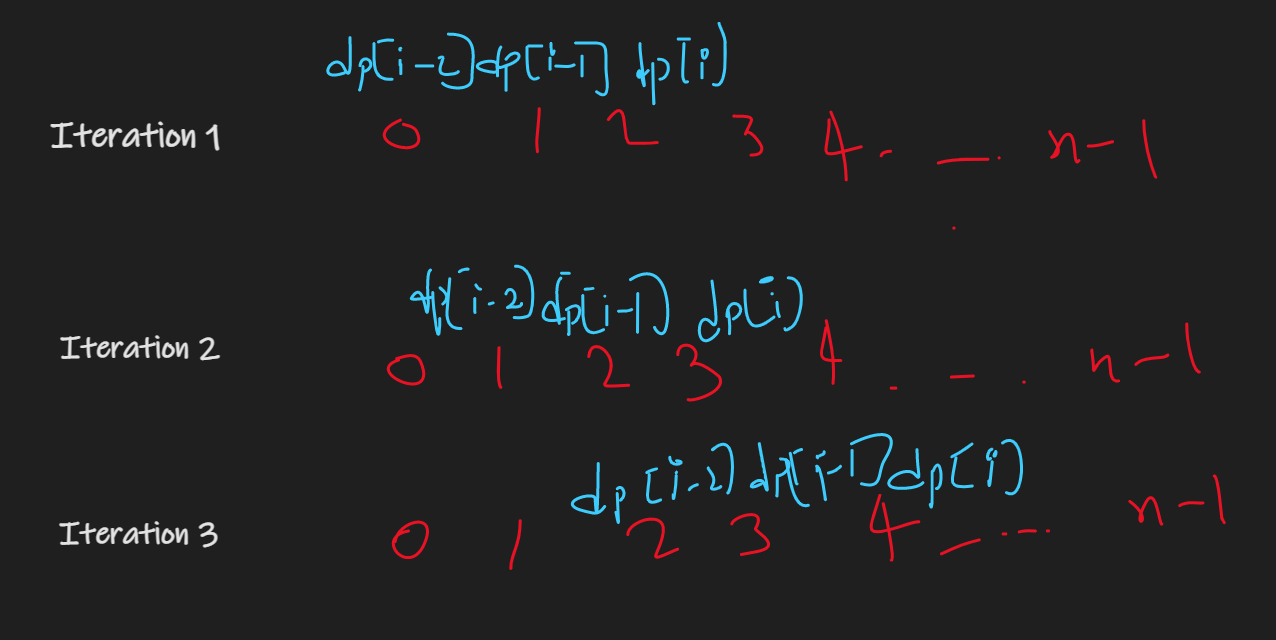 dp[i-2] dp[i-1] dp[i]
Iteration 1 0 1 2 3 4 . _ . n-1
dp[i-2] dp[i-1] dp[i]
Iteration 2 0 1 2 3 4 . - . n-1
dp[i-2] dp[i-1] dp[i]
Iteration 3 0 1 2 3 4 _ ... n-1